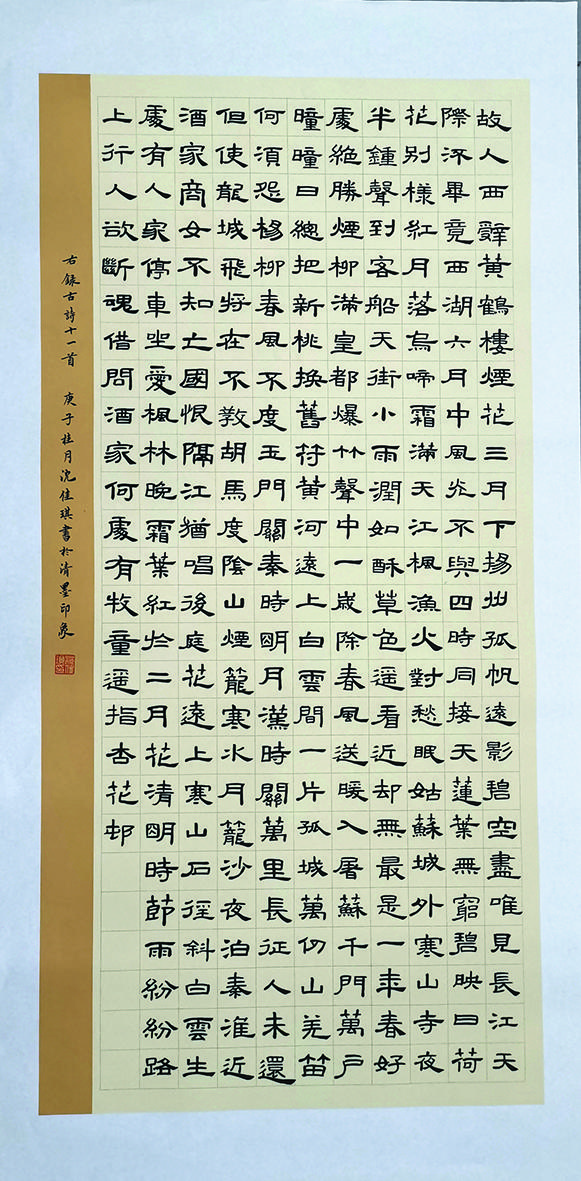 故人西辭黃鶴樓煙花三月下揚州孤帆遠影碧空盡唯見長江天
際流畢竟西湖六月中風光不與四時同接天蓮葉無窮碧映日荷
花別樣紅月落烏啼霜滿天江楓漁火對愁眠姑蘇城外寒山寺夜
半鍾聲到客船天街小雨潤如酥草色遙看近却無最是一年春好
處絕勝煙柳滿皇都爆竹聲中一歲除春風送暖入屠蘇千門萬戶
曈曈日總把新桃換舊符黃河遠上白雲間一片孤城萬仞山羌笛
何須怨楊柳春風不度玉門關秦時明月漢時關萬里長征人未還
但使龍城飛將在不教胡馬度陰山煙籠寒水月籠沙夜泊秦淮近
酒家商女不知亡國恨隔江猶唱後庭花遠上寒山石徑斜白雲生
處有人家停車坐愛楓林晚霜葉紅於二月花清明時節雨紛紛路
上行人欲斷魂借問酒家何處有牧童遙指杏花邨
右錄古詩十一首 庚子桂月沈佳琪書於清墨印象